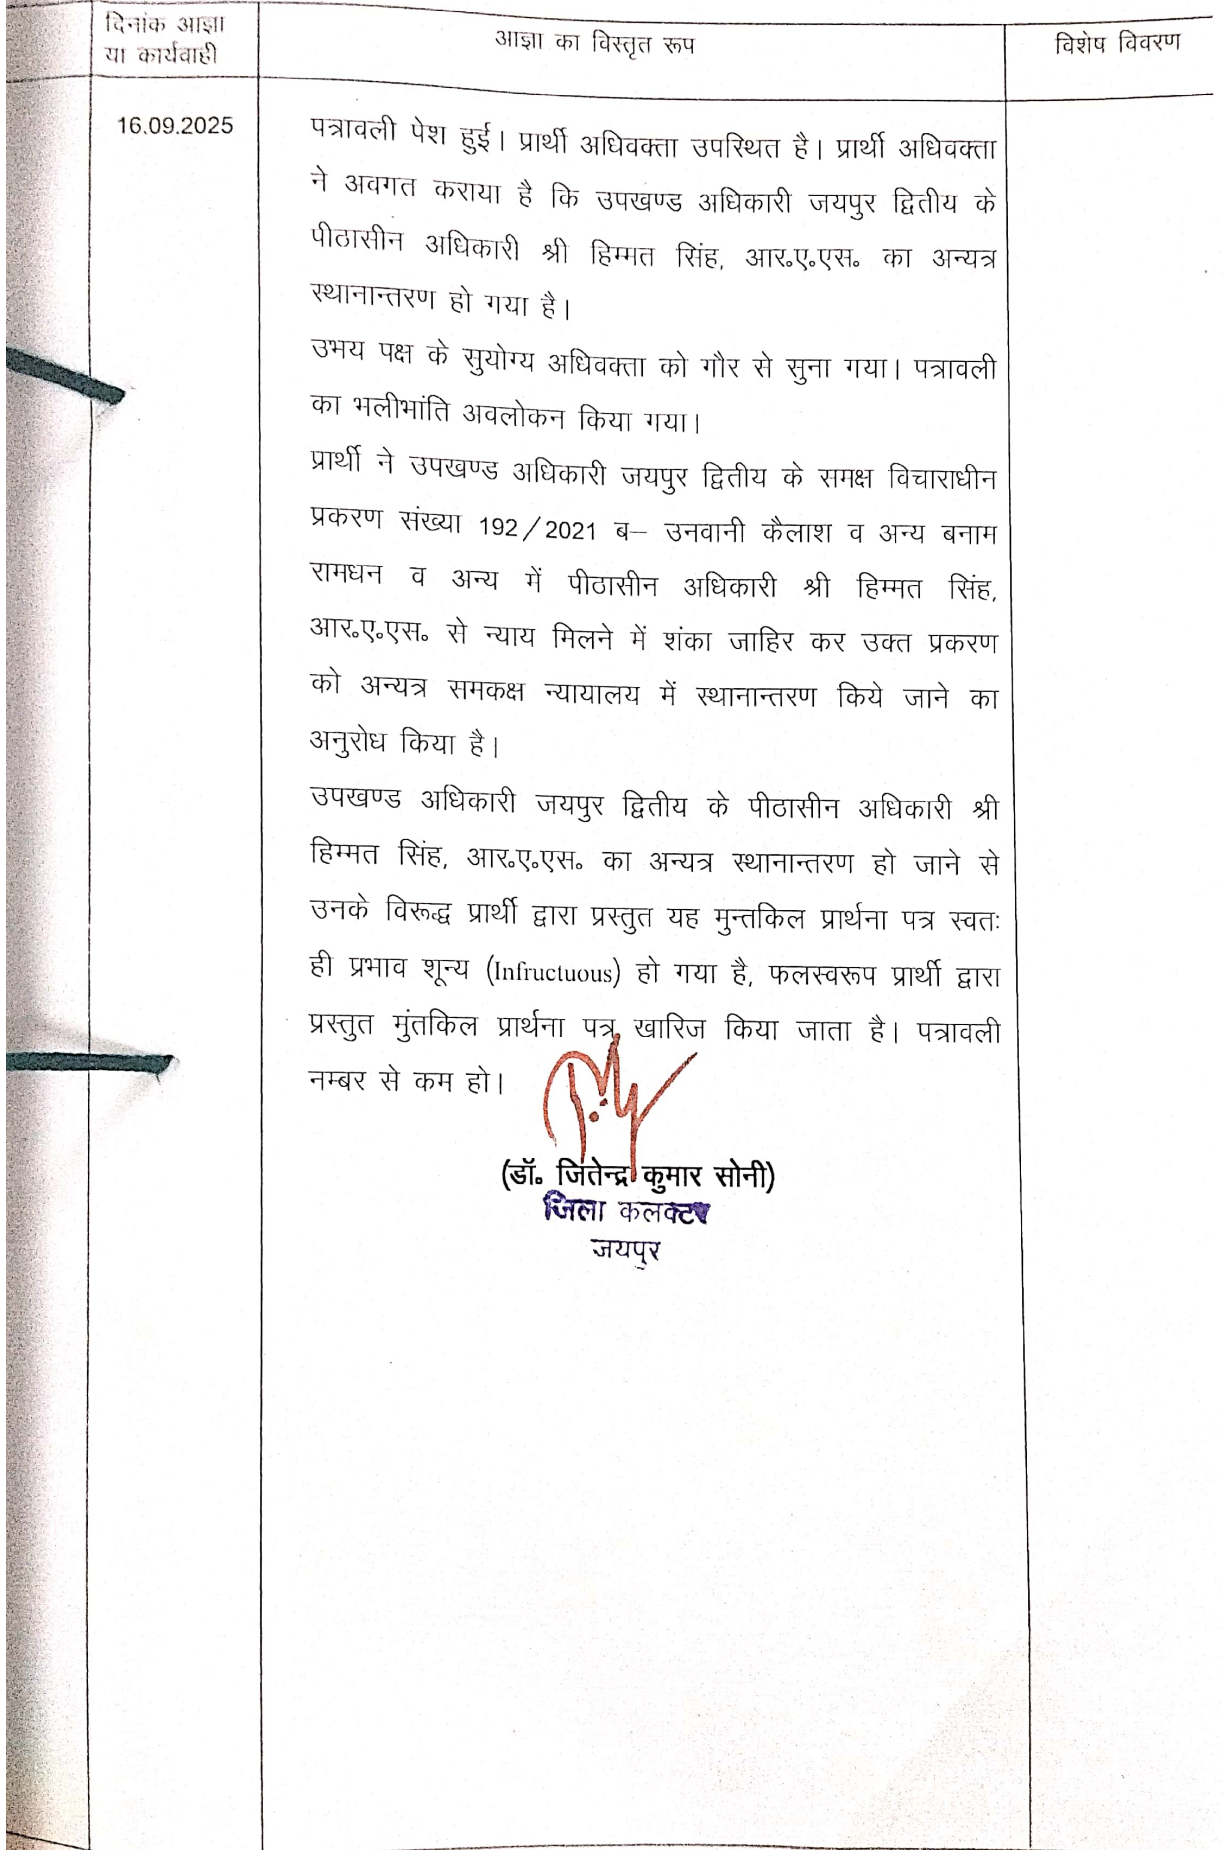 दिनांक आज्ञा
या कार्यवाही
आज्ञा का विस्तृत रूप
विशेष विवरण
16.09.2025
पत्रावली पेश हुई। प्रार्थी अधिवक्ता उपस्थित है। प्रार्थी अधिवक्ता
ने अवगत कराया है कि उपखण्ड अधिकारी जयपुर द्वितीय के
पीठासीन अधिकारी श्री हिम्मत सिंह, आर॰ए॰एस॰ का अन्यत्र
स्थानान्तरण हो गया है।
उभय पक्ष के सुयोग्य अधिवक्ता को गौर से सुना गया। पत्रावली
का भलीभांति अवलोकन किया गया।
प्रार्थी ने उपखण्ड अधिकारी जयपुर द्वितीय के समक्ष विचाराधीन
प्रकरण संख्या 192/2021 ब– उनवानी कैलाश व अन्य बनाम
रामधन व अन्य में पीठासीन अधिकारी श्री हिम्मत सिंह,
आर॰ए॰एस॰ से न्याय मिलने में शंका जाहिर कर उक्त प्रकरण
को अन्यत्र समकक्ष न्यायालय में स्थानान्तरण किये जाने का
अनुरोध किया है।
उपखण्ड अधिकारी जयपुर द्वितीय के पीठासीन अधिकारी श्री
हिम्मत सिंह, आर॰ए॰एस॰ का अन्यत्र स्थानान्तरण हो जाने से
उनके विरूद्ध प्रार्थी द्वारा प्रस्तुत यह मुन्तकिल प्रार्थना पत्र स्वतः
ही प्रभाव शून्य (Infructuous) हो गया है, फलस्वरूप प्रार्थी द्वारा
प्रस्तुत मुंतकिल प्रार्थना पत्र खारिज किया जाता है। पत्रावली
नम्बर से कम हो।
(डॉ॰ जितेन्द्र कुमार सोनी)
जिला कलक्टर
जयपुर